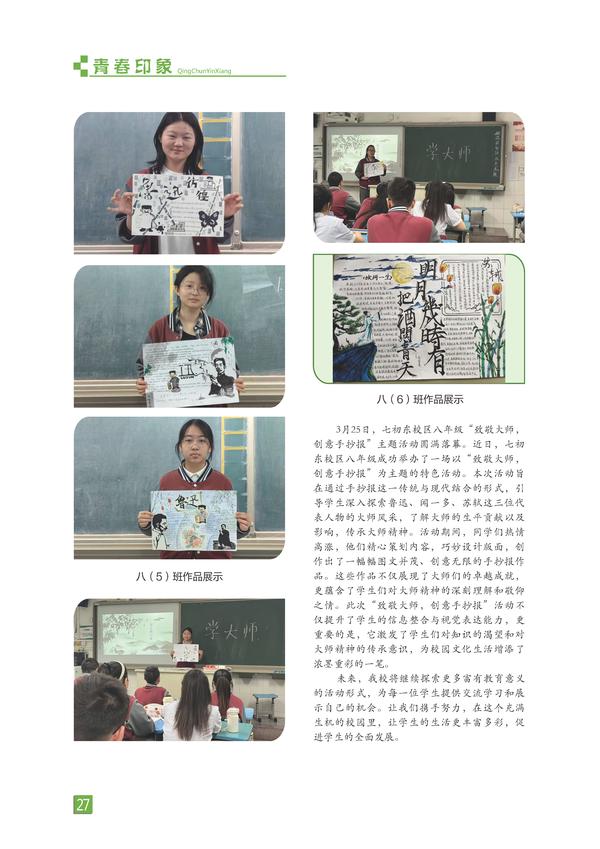 青春印象
QingChunYinXiang
鲁迅彷徨
鲁迅
八（5）班作品展示
学大师
学大师
明月几时有
把酒问青天
苏轼
八（6）班作品展示
3月25日，七初东校区八年级“致敬大师，
创意手抄报”主题活动圆满落幕。近日，七初
东校区八年级成功举办了一场以“致敬大师，
创意手抄报”为主题的特色活动。本次活动旨
在通过手抄报这一传统与现代结合的形式，引
导学生深入探索鲁迅、闻一多、苏轼这三位代
表人物的大师风采，了解大师的生平贡献以及
影响，传承大师精神。活动期间，同学们热情
高涨，他们精心策划内容，巧妙设计版面，创
作出了一幅幅图文并茂、创意无限的手抄报作
品。这些作品不仅展现了大师们的卓越成就，
更蕴含了学生们对大师精神的深刻理解和敬仰
之情。此次“致敬大师，创意手抄报”活动不
仅提升了学生的信息整合与视觉表达能力，更
重要的是，它激发了学生们对知识的渴望和对
大师精神的传承意识，为校园文化生活增添了
浓墨重彩的一笔。
未来，我校将继续探索更多富有教育意义
的活动形式，为每一位学生提供交流学习和展
示自己的机会。让我们携手努力，在这个充满
生机的校园里，让学生的生活更丰富多彩，促
进学生的全面发展。
27